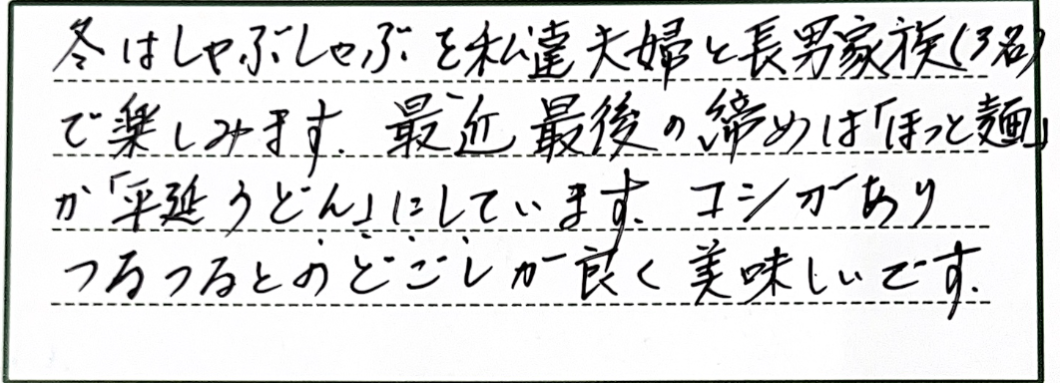 冬はしゃぶしゃぶを私達夫婦と長男家族(3名)
で楽しみます. 最近最後の締めは「ほっと麺」
か「平延うどん」にしています. コシがあり
つるつるとのどごしが良く美味しいです.